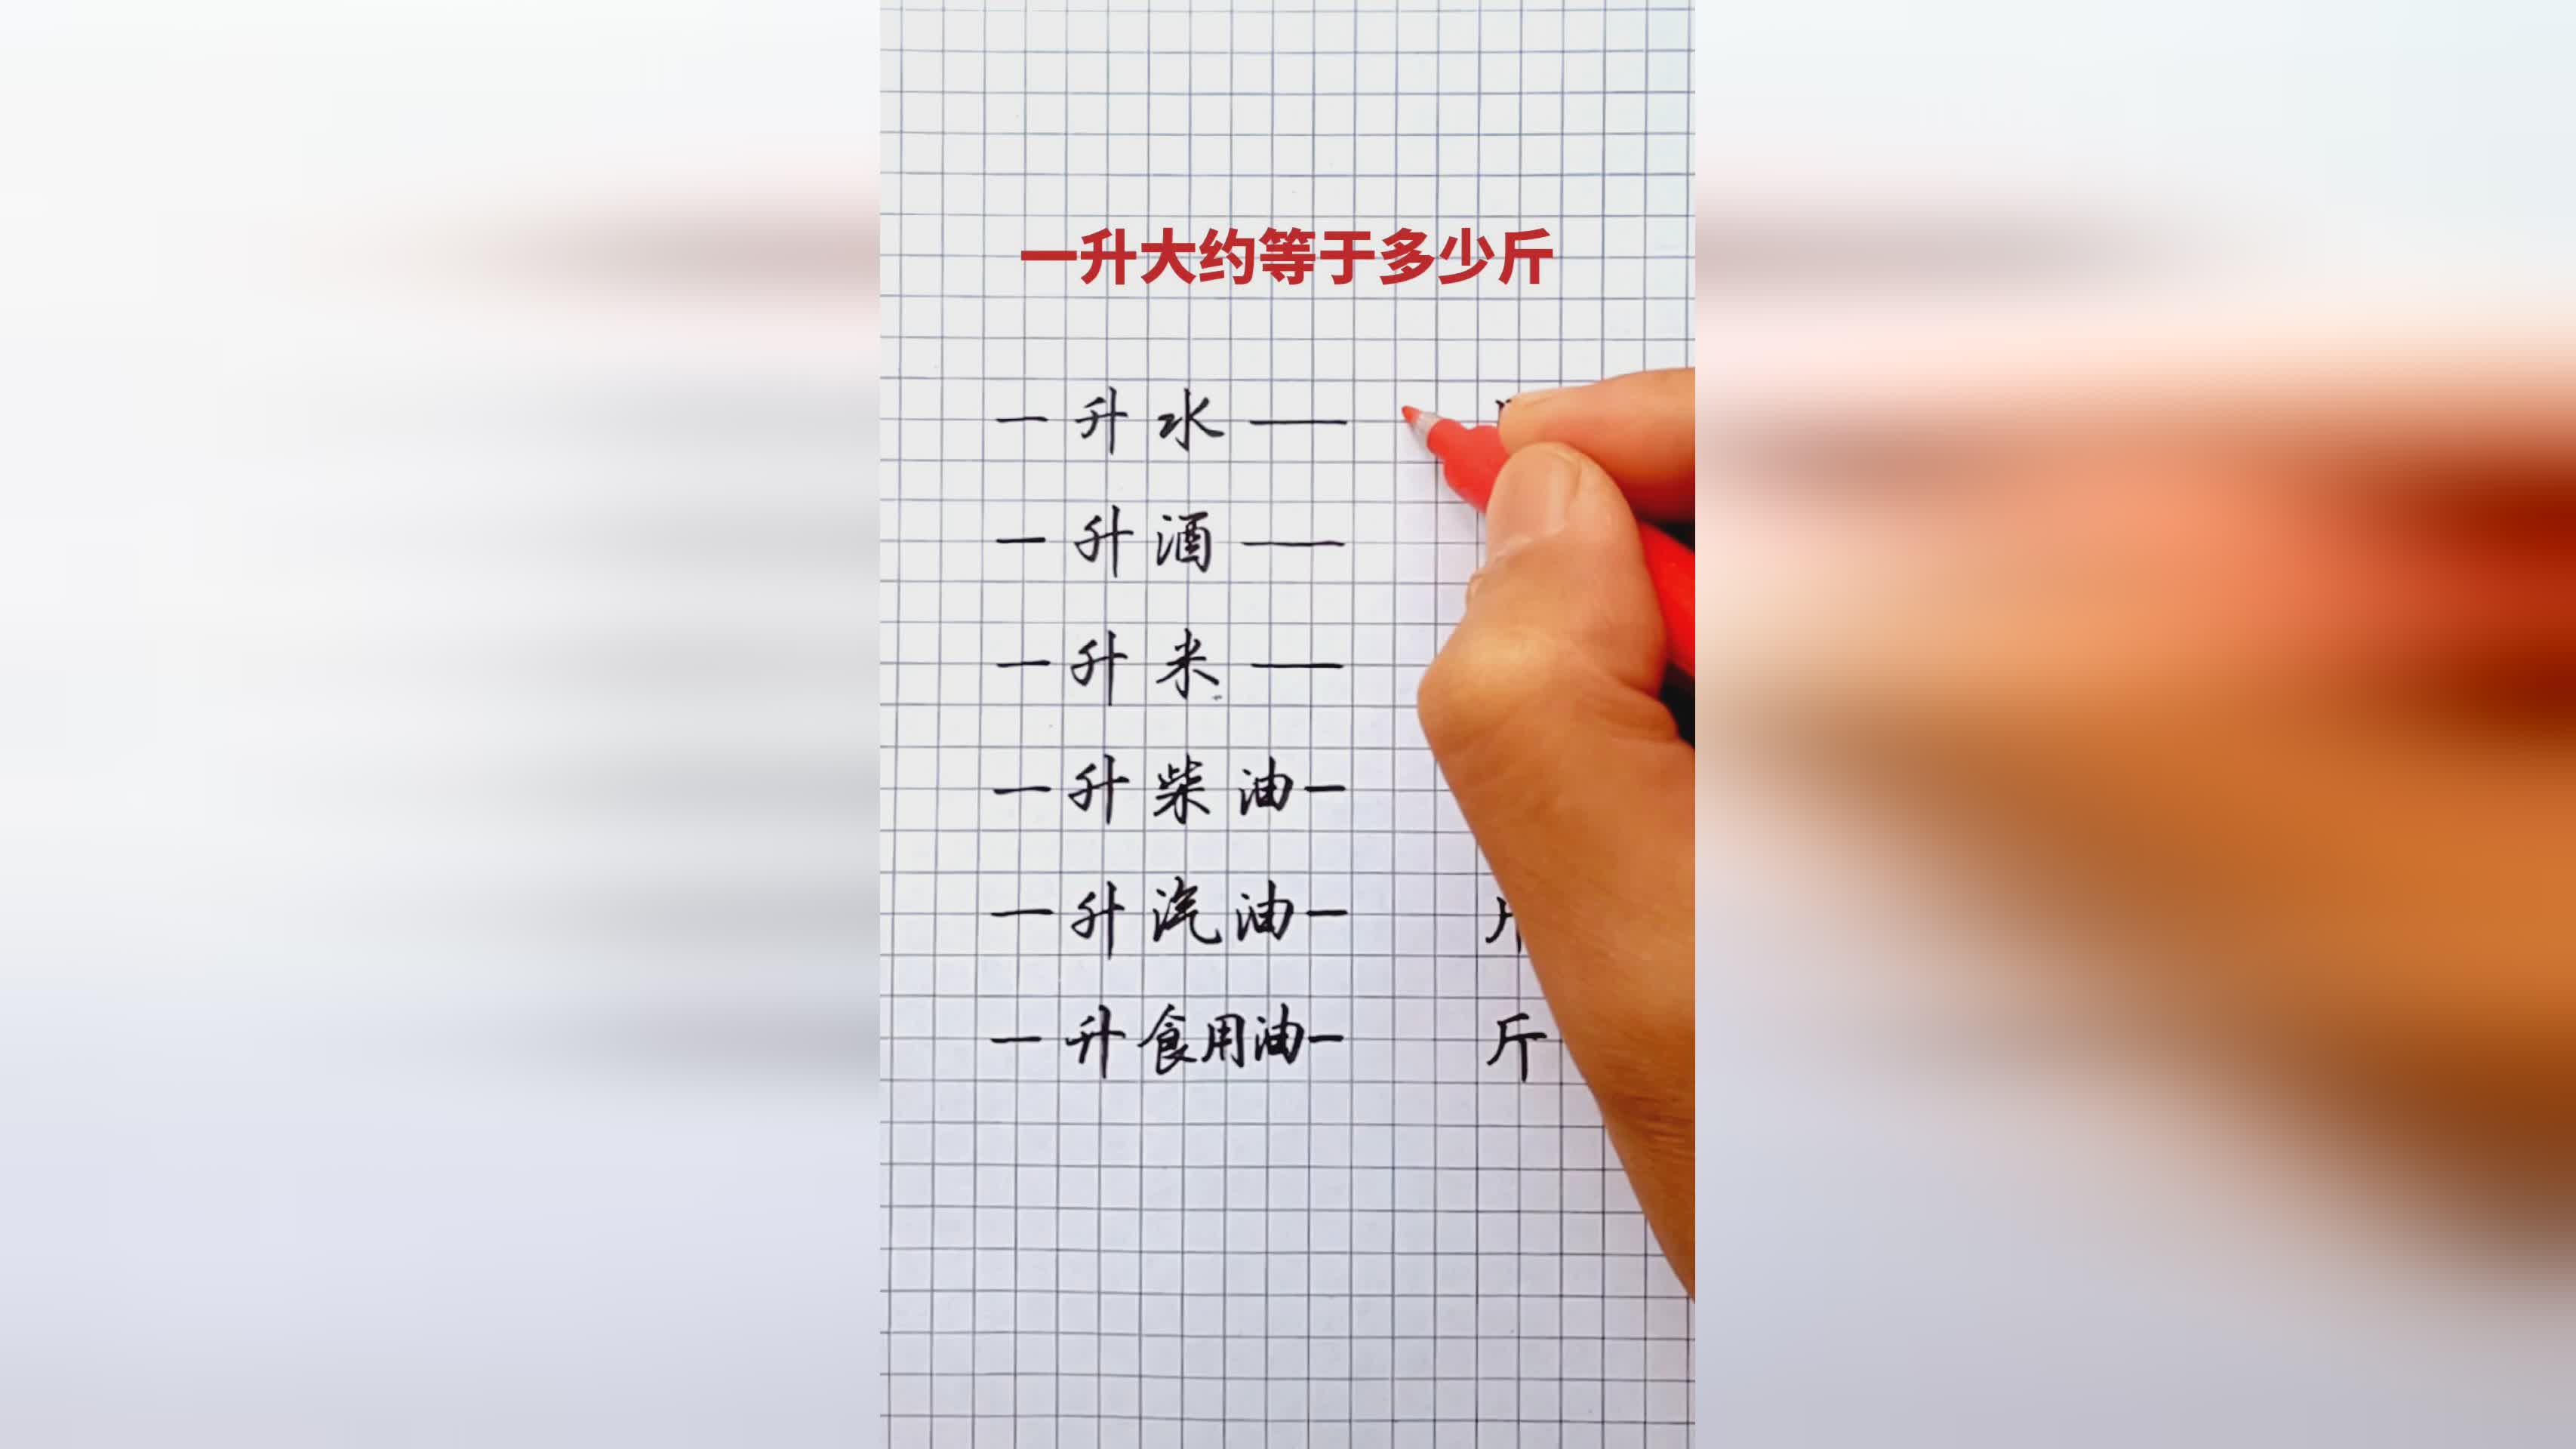 一升大约等于多少斤
一升水——
一升酒——
一升米——
一升柴油—
一升汽油— 斤
一升食用油— 斤